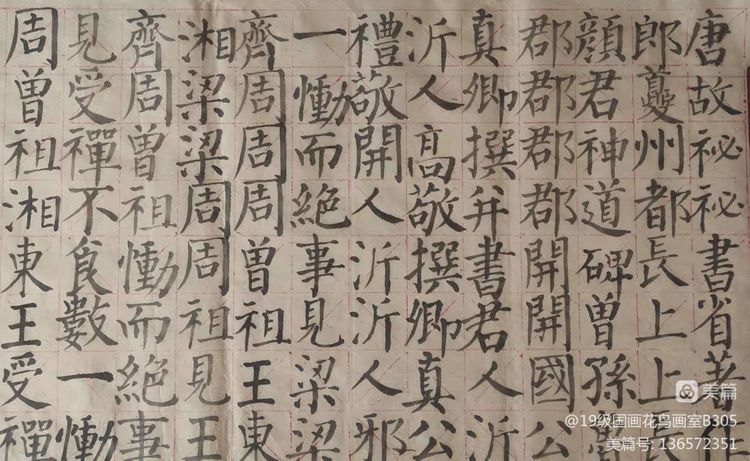 唐故祕祕書省著
郎夔州都長上上
顏君神道碑曾孫
郡郡郡郡開開國公
真卿撰并書君人沂
沂人高敬撰卿真公
禮敬開人沂沂人邪
一慟而絕事見梁梁
齊周周周曾祖王東
湘梁梁周周祖見王
齊周曾祖慟而絕事
見受禪不食數一慟
周曾祖湘東王受禪
美篇
@19级国画花鸟画室B305
美篇号: 136572351